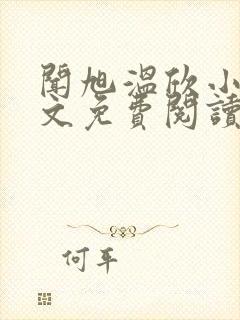 聞旭溫欣小
文免費閱讀
何年